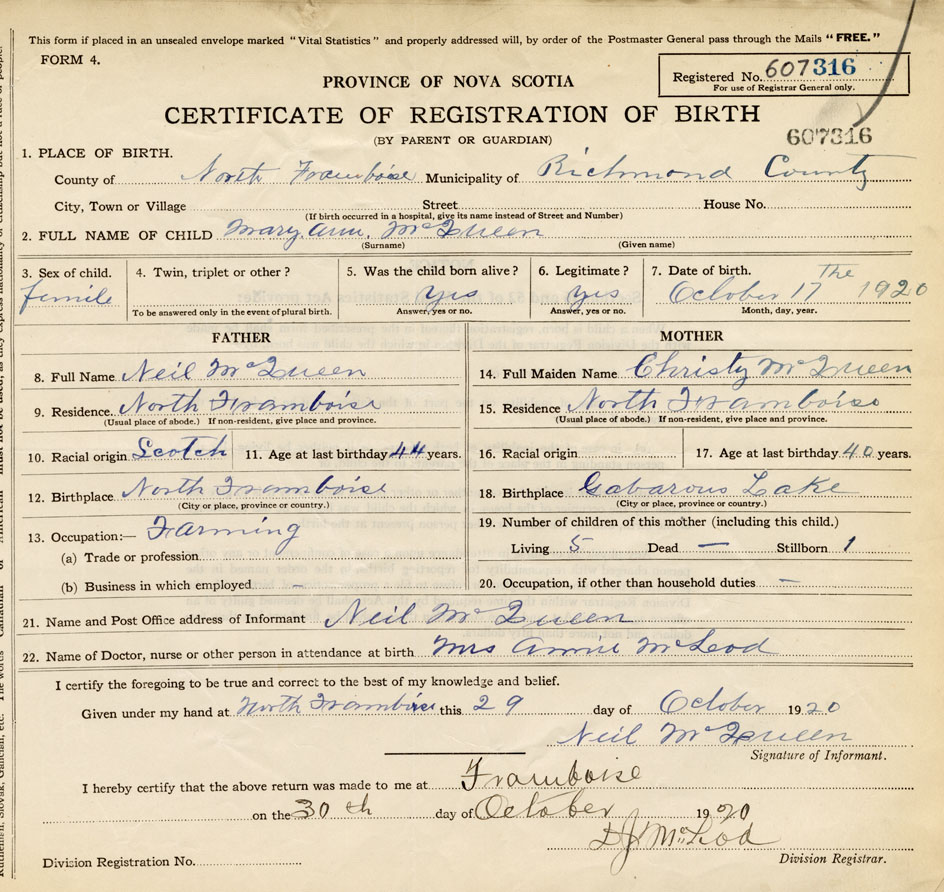 This form if placed in an unsealed envelope marked "Vital Statistics" and properly addressed will, by order of the Postmaster General pass through the Mails "FREE."
FORM 4.
PROVINCE OF NOVA SCOTIA
Registered No. 607316
For use of Registrar General only.
CERTIFICATE OF REGISTRATION OF BIRTH
(BY PARENT OR GUARDIAN)
607316
1. PLACE OF BIRTH.
County of North Framboise Municipality of Richmond County
City, Town or Village Street House No.
(If birth occurred in a hospital, give its name instead of Street and Number)
2. FULL NAME OF CHILD Mary Ann McQueen
(Surname) (Given name)
3. Sex of child. 4. Twin, triplet or other? 5. Was the child born alive? 6. Legitimate? 7. Date of birth.
femile yes yes October 17 The 1920
To be answered only in the event of plural birth. Answer, yes or no. Answer, yes or no. Month, day, year.
FATHER MOTHER
8. Full Name Neil McQueen 14. Full Maiden Name Christy McQueen
9. Residence. North Framboise 15. Residence North Framboise
(Usual place of abode.) If non-resident, give place and province. (Usual place of abode.) If non-resident, give place and province.
10. Racial origin Scotch 11. Age at last birthday 44 years. 16. Racial origin 17. Age at last birthday 40 years.
12. Birthplace North Framboise 18. Birthplace Gabarous Lake
(City or place, province or country.) (City or place, province or country.)
13. Occupation:— Farming 19. Number of children of this mother (including this child.)
(a) Trade or profession Living 5 Dead — Stillborn 1
(b) Business in which employed - 20. Occupation, if other than household duties -
21. Name and Post Office address of Informant Neil McQueen
22. Name of Doctor, nurse or other person in attendance at birth Mrs Annie McLeod
I certify the foregoing to be true and correct to the best of my knowledge and belief.
Given under my hand at North Framboise this 29 day of October 1920
Neil McQueen
Signature of Informant.
I hereby certify that the above return was made to me at Framboise
on the 30th day of October 1920
D J McLeod
Division Registration No. Division Registrar.